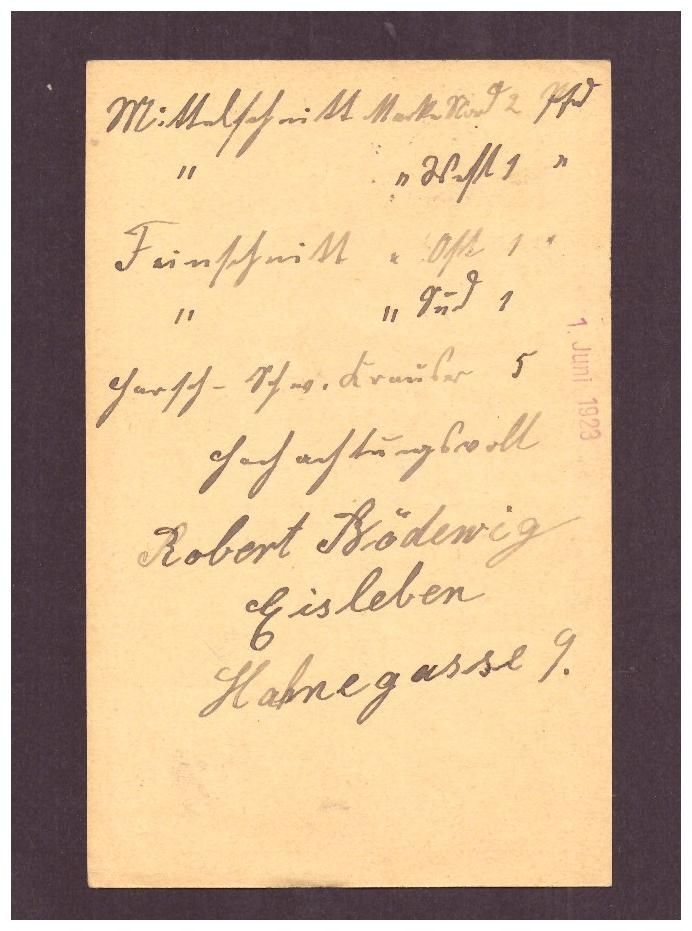 Mittelschnitt Marke Nord 2 Pfd
" " West 1 "
Feinschnitt " Ost 1 "
" " Süd 1
Schw. Krauser 5
Hochachtungsvoll
Robert Bödewig
Eisleben
Hahnegasse 9.
1. Juni 1923